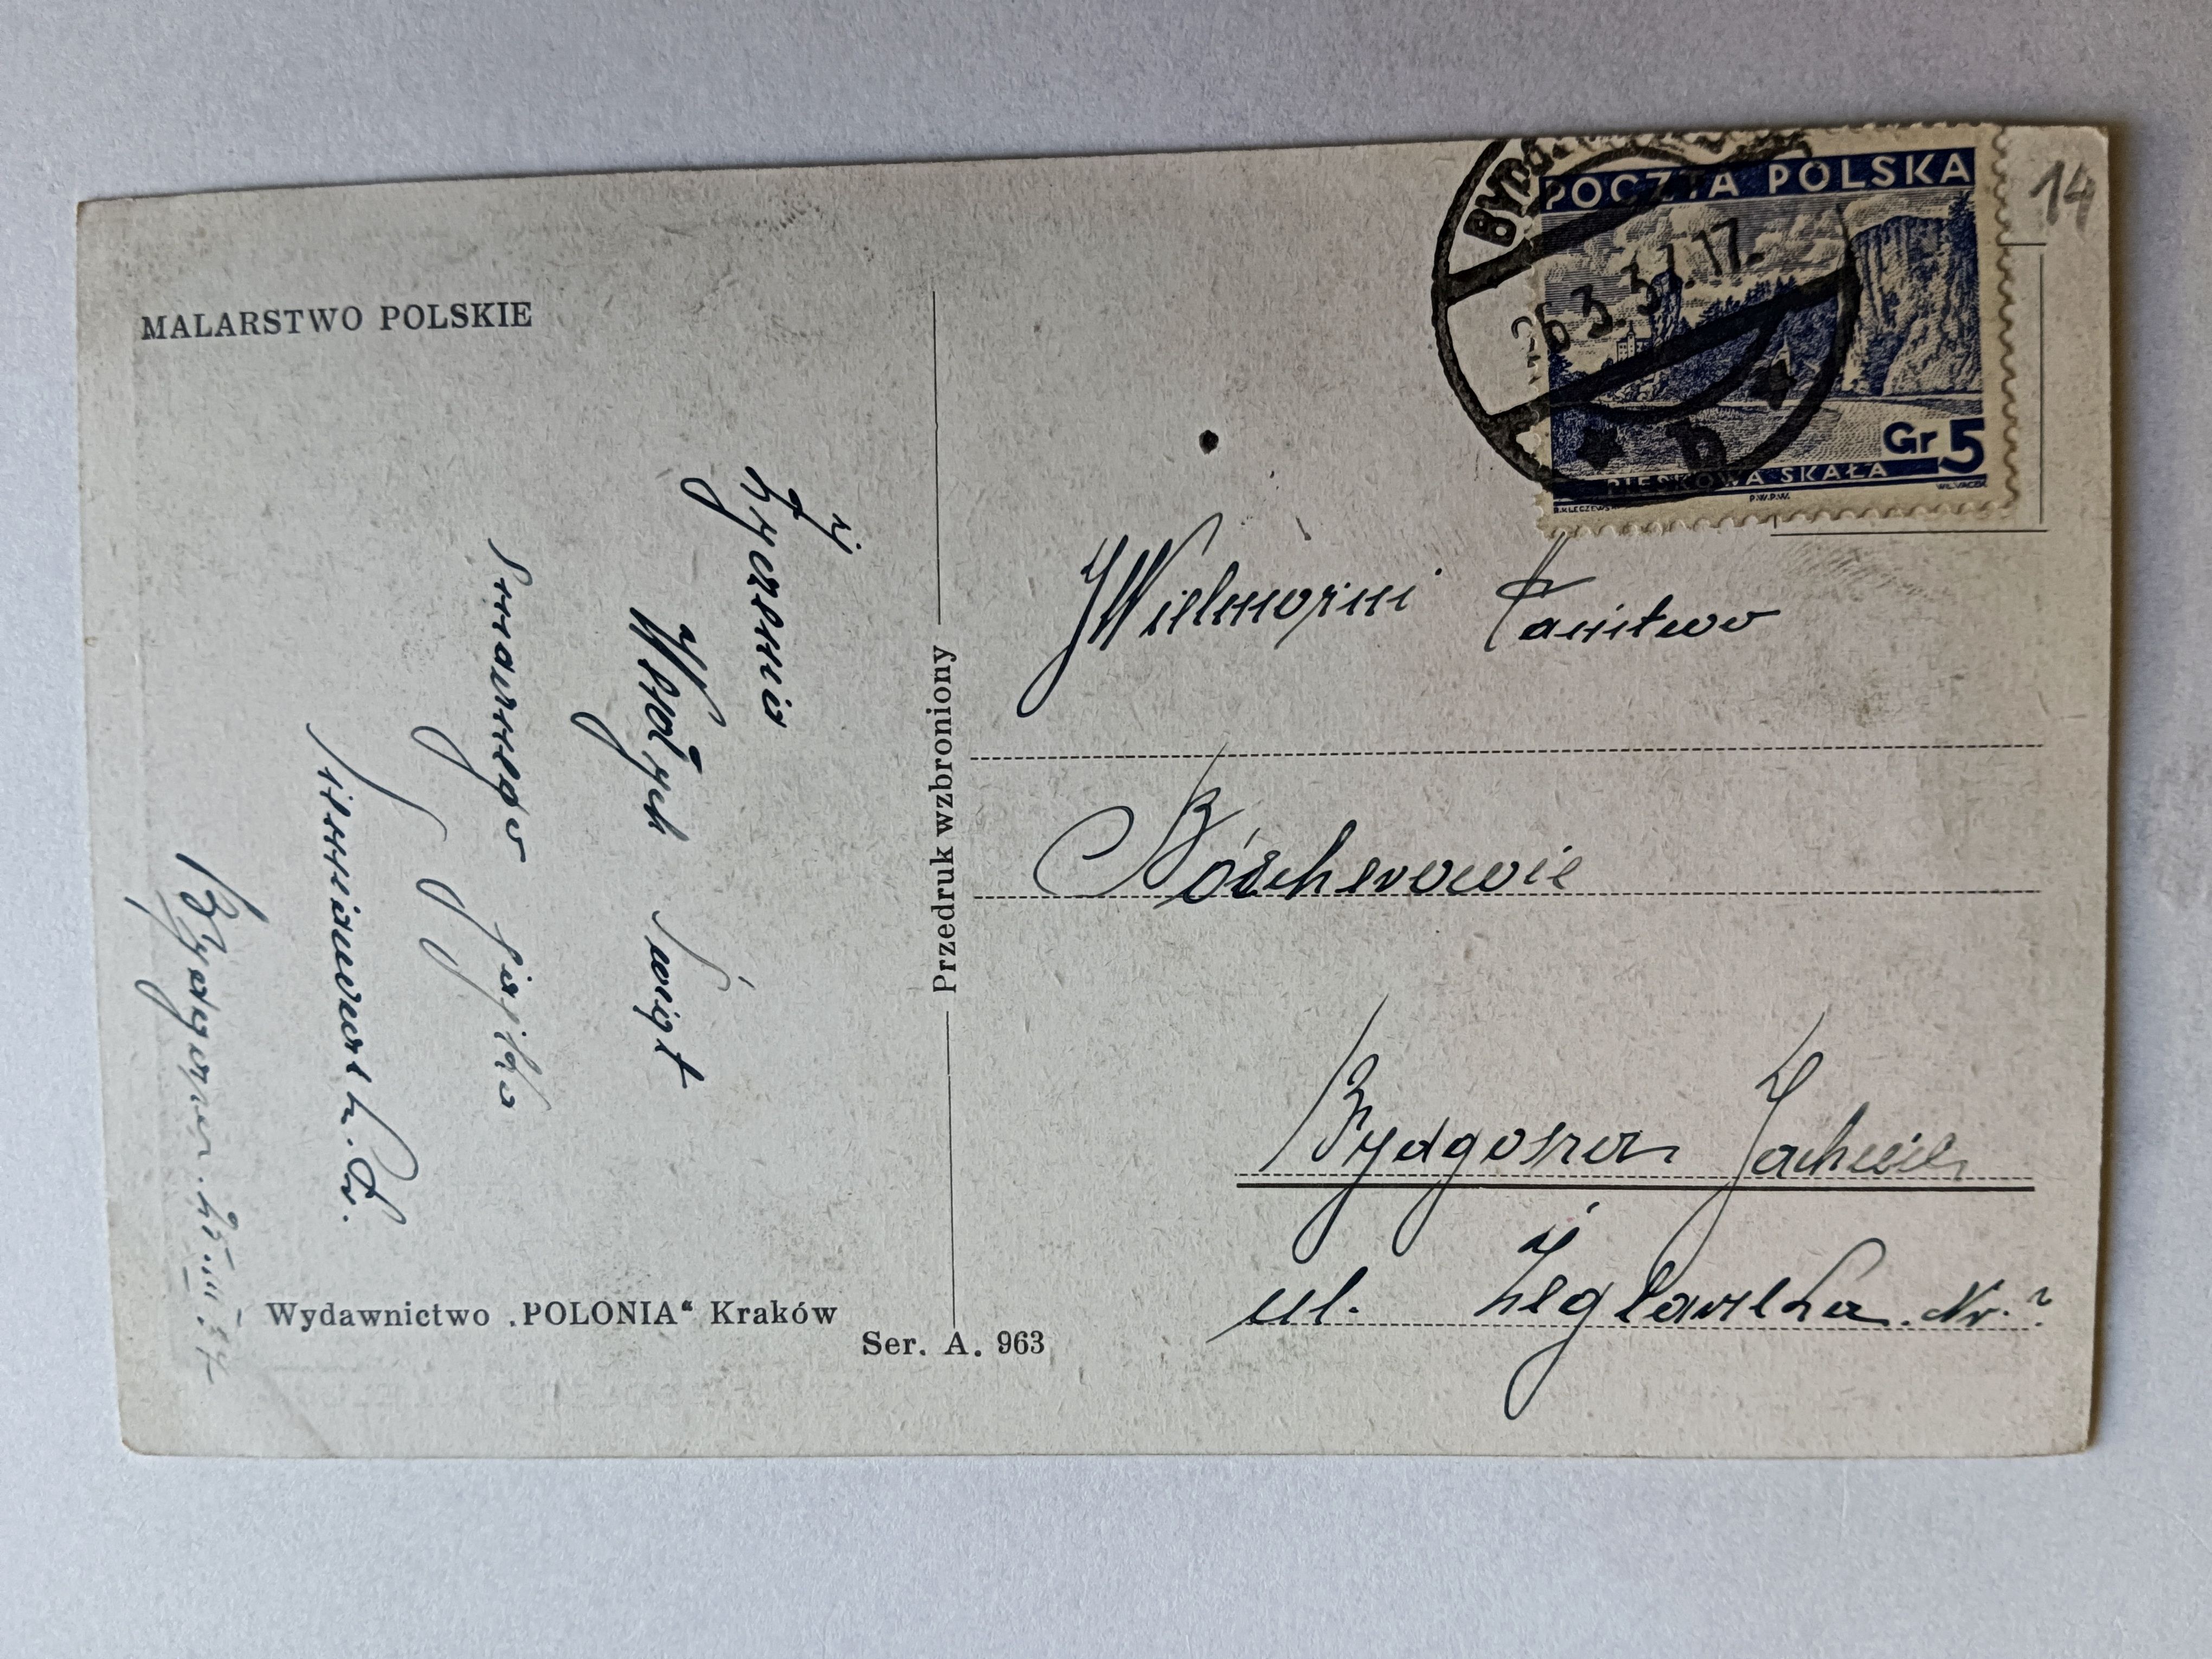 MALARSTWO POLSKIE
Życzenia
Wesołych Świąt
Smacznego Jajka
Bydgoszcz. 25.III.37
Wydawnictwo „POLONIA“ Kraków
Ser. A. 963
Przedruk wzbroniony
14
POCZTA POLSKA
Gr 5
PIESKOWA SKAŁA
P.W.P.W.
26.3.37.17.
b
JWielmożni Państwo
Bydgoszcz Jachcice
ul. Żeglarska. Nr. ?